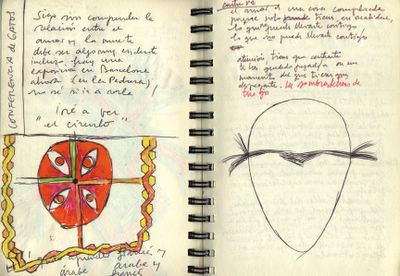 CONFERENCIA de GATOS
Sigo sin comprender la
relación entre el
amor y la muerte
debe ser algo muy evidente
incluso hay una
exposición en Barcelona
ahora (en la Pedrera)
no sé si ir a verla!
Iré a ver
"el circulo"
aprender francés y
árabe árabe y
francés
el amor es una cosa complicada
porque solo puede tienes, en realidad,
lo que puedes llevarte contigo
lo que no puedes llevarte contigo
atención tienes que sentarte
te has quedado pegado/a en un
momento del que tienes que
despegarte. la sombrerera de